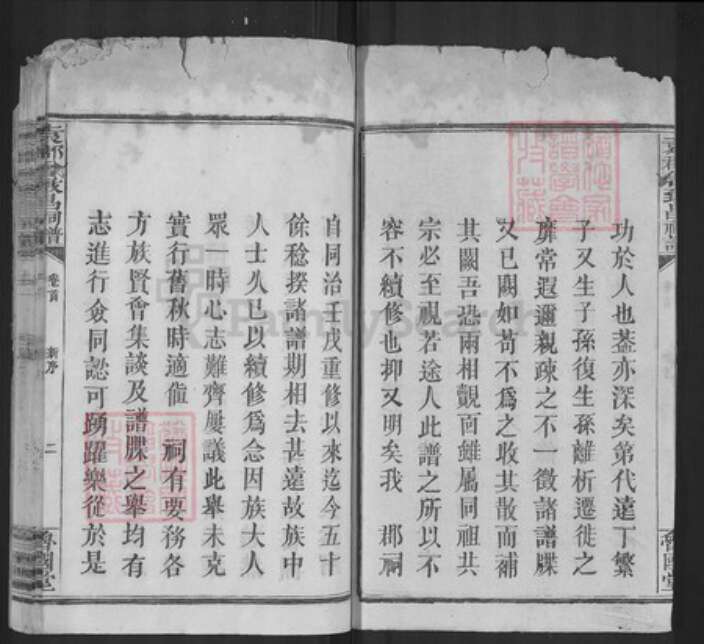 功於人也蓋亦深矣第代遠丁繁
子又生子孫復生孫離析遷徙之
靡常遐邇親疎之不一徵諸譜牒
又已闕如苟不爲之收其散而補
其闕吾恐兩相覿面雖屬同祖共
宗必至視若途人此譜之所以不
容不續修也抑又明矣我 郡祠
自同治壬戌重修以來迄今五十
餘稔揆諸譜期相去甚遠故族中
人士久已以續修爲念因族大人
眾一時心志難齊屢議此舉未克
實行舊秋時適値 祠有要務各
方族賢會集談及譜牒之舉均有
志進行僉同認可踴躍樂從於是
卷首
新序
二
魯國堂
FamilySearch